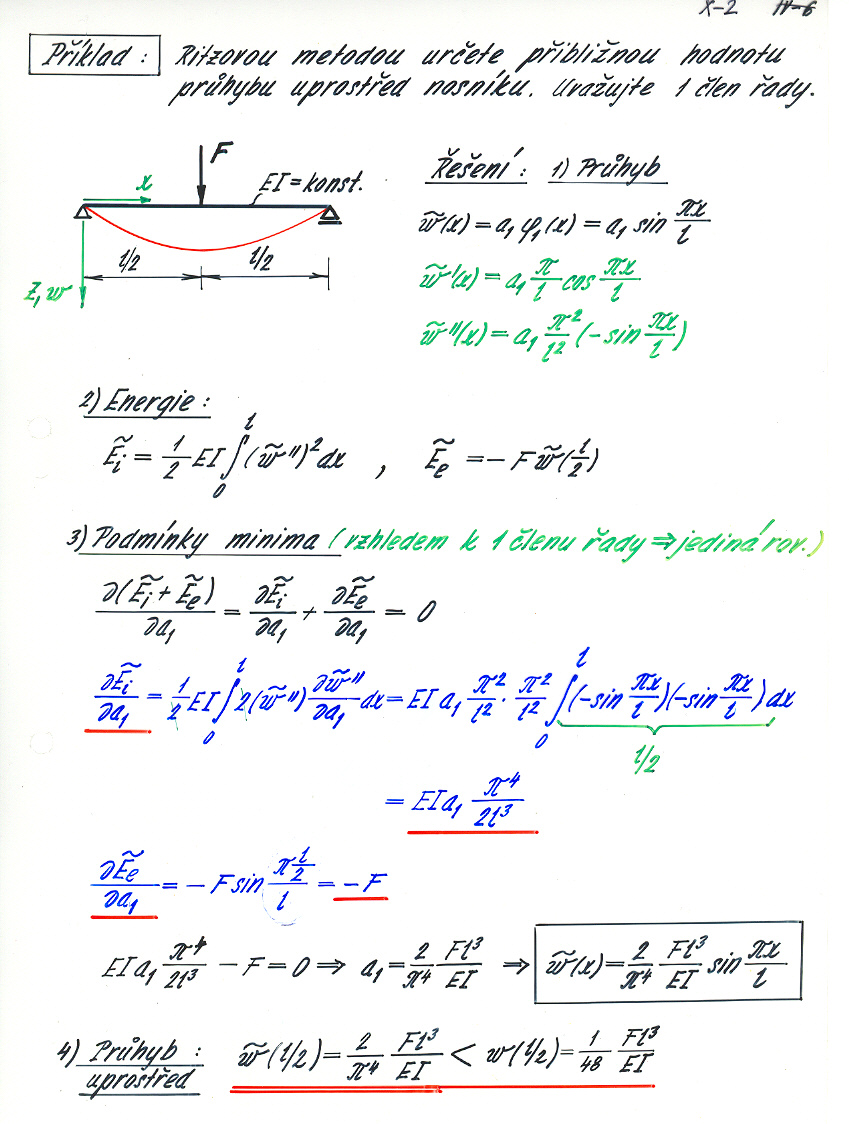 X-2 IV-6
Příklad : Ritzovou metodou určete přibližnou hodnotu
průhybu uprostřed nosníku. Uvažujte 1 člen řady.
F
x
EI = konst.
l/2 l/2
z, w
Řešení : 1) Průhyb
w̃(x) = a₁ φ₁(x) = a₁ sin πx/l
w̃'(x) = a₁ π/l cos πx/l
w̃''(x) = a₁ π²/l² (-sin πx/l)
2) Energie :
Ẽᵢ = 1/2 EI ∫₀ˡ (w̃'')² dx , Ẽₑ = - F w̃(l/2)
3) Podmínky minima (vzhledem k 1 členu řady ⇒ jediná rov.)
∂(Ẽᵢ + Ẽₑ)/∂a₁ = ∂Ẽᵢ/∂a₁ + ∂Ẽₑ/∂a₁ = 0
∂Ẽᵢ/∂a₁ = 1/2 EI ∫₀ˡ 2(w̃'') ∂w̃''/∂a₁ dx = EI a₁ π²/l² · π²/l² ∫₀ˡ (-sin πx/l)(-sin πx/l) dx
l/2
= EI a₁ π⁴/2l³
∂Ẽₑ/∂a₁ = - F sin (π l/2)/l = - F
EI a₁ π⁴/2l³ - F = 0 ⇒ a₁ = 2/π⁴ Fl³/EI ⇒ w̃(x) = 2/π⁴ Fl³/EI sin πx/l
4) Průhyb : w̃(l/2) = 2/π⁴ Fl³/EI < w(l/2) = 1/48 Fl³/EI
uprostřed